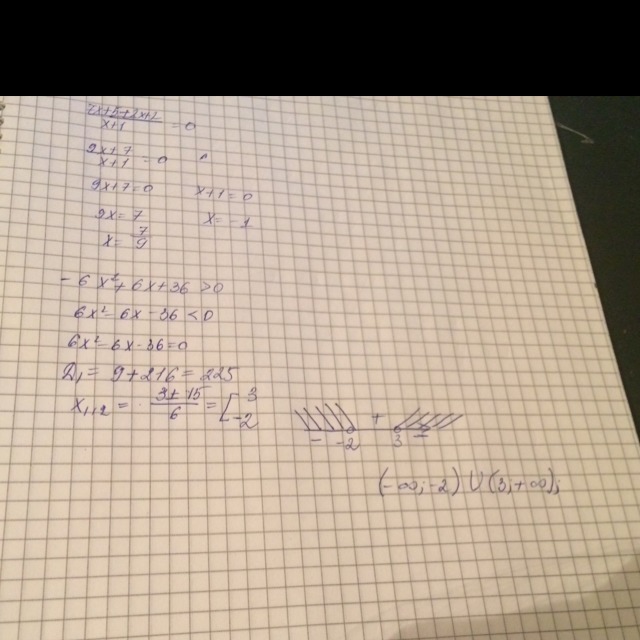 x+1 = 0
9x+7
x+1 = 0 ^
9x+7=0 x+1=0
9x = 7 x = -1
x = 7/9
- 6x²+6x+36 >0
6x²-6x-36 <0
6x²-6x-36=0
D₁ = 9+216 = 225
x₁,₂ = 3±15 / 6 = [ 3 -2
- -2 + 3 -
(-∞;-2) U (3;+∞);